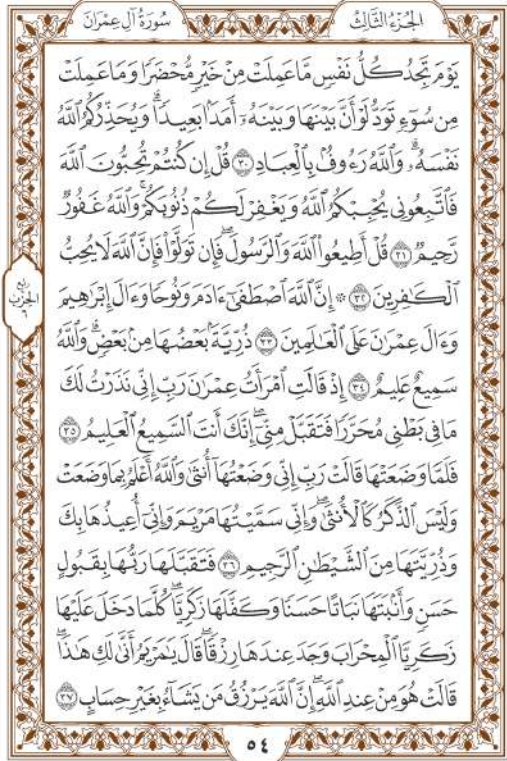 الجُزْءُ الثَّالِثُ
سُورَةُ آلِ عِمْرَانَ
يَوْمَ تَجِدُ كُلُّ نَفْسٍ مَّا عَمِلَتْ مِنْ خَيْرٍ مُّحْضَرًا وَمَا عَمِلَتْ
مِن سُوٓءٍ تَوَدُّ لَوْ أَنَّ بَيْنَهَا وَبَيْنَهُۥٓ أَمَدَۢا بَعِيدًاۗ وَيُحَذِّرُكُمُ ٱللَّهُ
نَفْسَهُۥۗ وَٱللَّهُ رَءُوفُۢ بِٱلْعِبَادِ ٣٠ قُلْ إِن كُنتُمْ تُحِبُّونَ ٱللَّهَ
فَٱتَّبِعُونِي يُحْبِبْكُمُ ٱللَّهُ وَيَغْفِرْ لَكُمْ ذُنُوبَكُمْۚ وَٱللَّهُ غَفُورٌ
رَّحِيمٌ ٣١ قُلْ أَطِيعُوا۟ ٱللَّهَ وَٱلرَّسُولَۖ فَإِن تَوَلَّوْا۟ فَإِنَّ ٱللَّهَ لَا يُحِبُّ
ٱلْكَـٰفِرِينَ ٣٢ ۞ إِنَّ ٱللَّهَ ٱصْطَفَىٰٓ ءَادَمَ وَنُوحًا وَءَالَ إِبْرَٰهِيمَ
وَءَالَ عِمْرَٰنَ عَلَى ٱلْعَـٰلَمِينَ ٣٣ ذُرِّيَّةَۢ بَعْضُهَا مِنۢ بَعْضٍۗ وَٱللَّهُ
سَمِيعٌ عَلِيمٌ ٣٤ إِذْ قَالَتِ ٱمْرَأَتُ عِمْرَٰنَ رَبِّ إِنِّي نَذَرْتُ لَكَ
مَا فِي بَطْنِي مُحَرَّرًا فَتَقَبَّلْ مِنِّيٓۖ إِنَّكَ أَنتَ ٱلسَّمِيعُ ٱلْعَلِيمُ ٣٥
فَلَمَّا وَضَعَتْهَا قَالَتْ رَبِّ إِنِّي وَضَعْتُهَآ أُنثَىٰ وَٱللَّهُ أَعْلَمُ بِمَا وَضَعَتْ
وَلَيْسَ ٱلذَّكَرُ كَٱلْأُنثَىٰۖ وَإِنِّي سَمَّيْتُهَا مَرْيَمَ وَإِنِّيٓ أُعِيذُهَا بِكَ
وَذُرِّيَّتَهَا مِنَ ٱلشَّيْطَـٰنِ ٱلرَّجِيمِ ٣٦ فَتَقَبَّلَهَا رَبُّهَا بِقَبُولٍ
حَسَنٍ وَأَنۢبَتَهَا نَبَاتًا حَسَنًا وَكَفَّلَهَا زَكَرِيَّاۖ كُلَّمَا دَخَلَ عَلَيْهَا
زَكَرِيَّا ٱلْمِحْرَابَ وَجَدَ عِندَهَا رِزْقًاۖ قَالَ يَـٰمَرْيَمُ أَنَّىٰ لَكِ هَـٰذَاۖ
قَالَتْ هُوَ مِنْ عِندِ ٱللَّهِۖ إِنَّ ٱللَّهَ يَرْزُقُ مَن يَشَآءُ بِغَيْرِ حِسَابٍ ٣٧
رُبع
الحِزْب
٦
٥٤